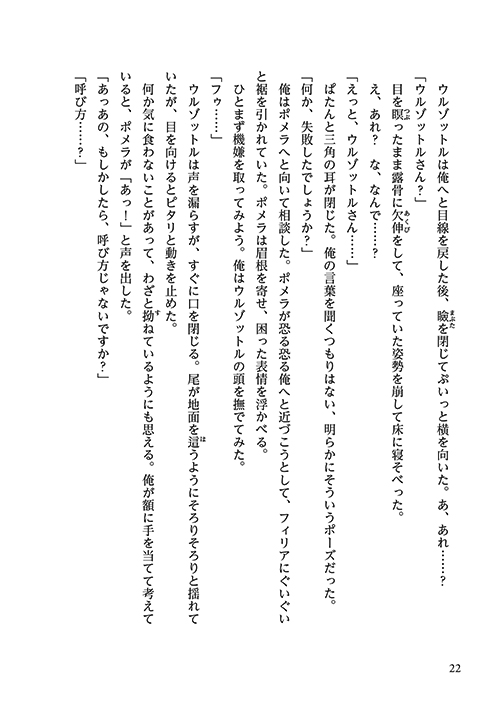 ウルゾットルは俺へと目線を戻した後、瞼を閉じてぷいっと横を向いた。あ、あれ……?
「ウルゾットルさん?」
目を瞑ったまま露骨に欠伸をして、座っていた姿勢を崩して床に寝そべった。
え、あれ? な、なんで……?
「えっと、ウルゾットルさん……」
ぱたんと三角の耳が閉じた。俺の言葉を聞くつもりはない、明らかにそういうポーズだった。
「何か、失敗したでしょうか?」
俺はポメラへと向いて相談した。ポメラが恐る恐る俺へと近づこうとして、フィリアにぐいぐい
と裾を引かれていた。ポメラは眉根を寄せ、困った表情を浮かべる。
ひとまず機嫌を取ってみよう。俺はウルゾットルの頭を撫でてみた。
「フゥ……」
ウルゾットルは声を漏らすが、すぐに口を閉じる。尾が地面を這うようにそろりそろりと揺れて
いたが、目を向けるとピタリと動きを止めた。
何か気に食わないことがあって、わざと拗ねているようにも思える。俺が額に手を当てて考えて
いると、ポメラが「あっ!」と声を出した。
「あっあの、もしかしたら、呼び方じゃないですか?」
「呼び方……?」
22